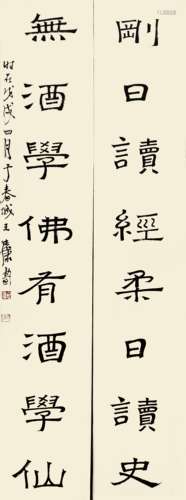 剛日讀經柔日讀史
無酒學佛有酒學仙
時在戊戌四月于春城王